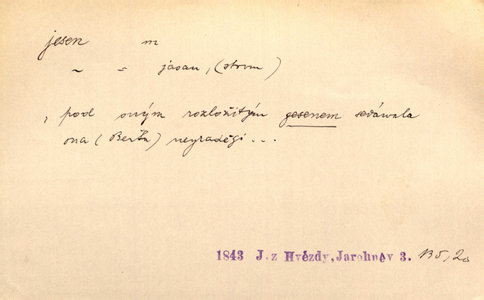 jesen m
~ = jasan, (strom)
, pod oným rozložitým gesenem sedáwala
ona (Berta) neyraděgi ...
1843 J. z Hvězdy, Jarohněv 3. 135,20